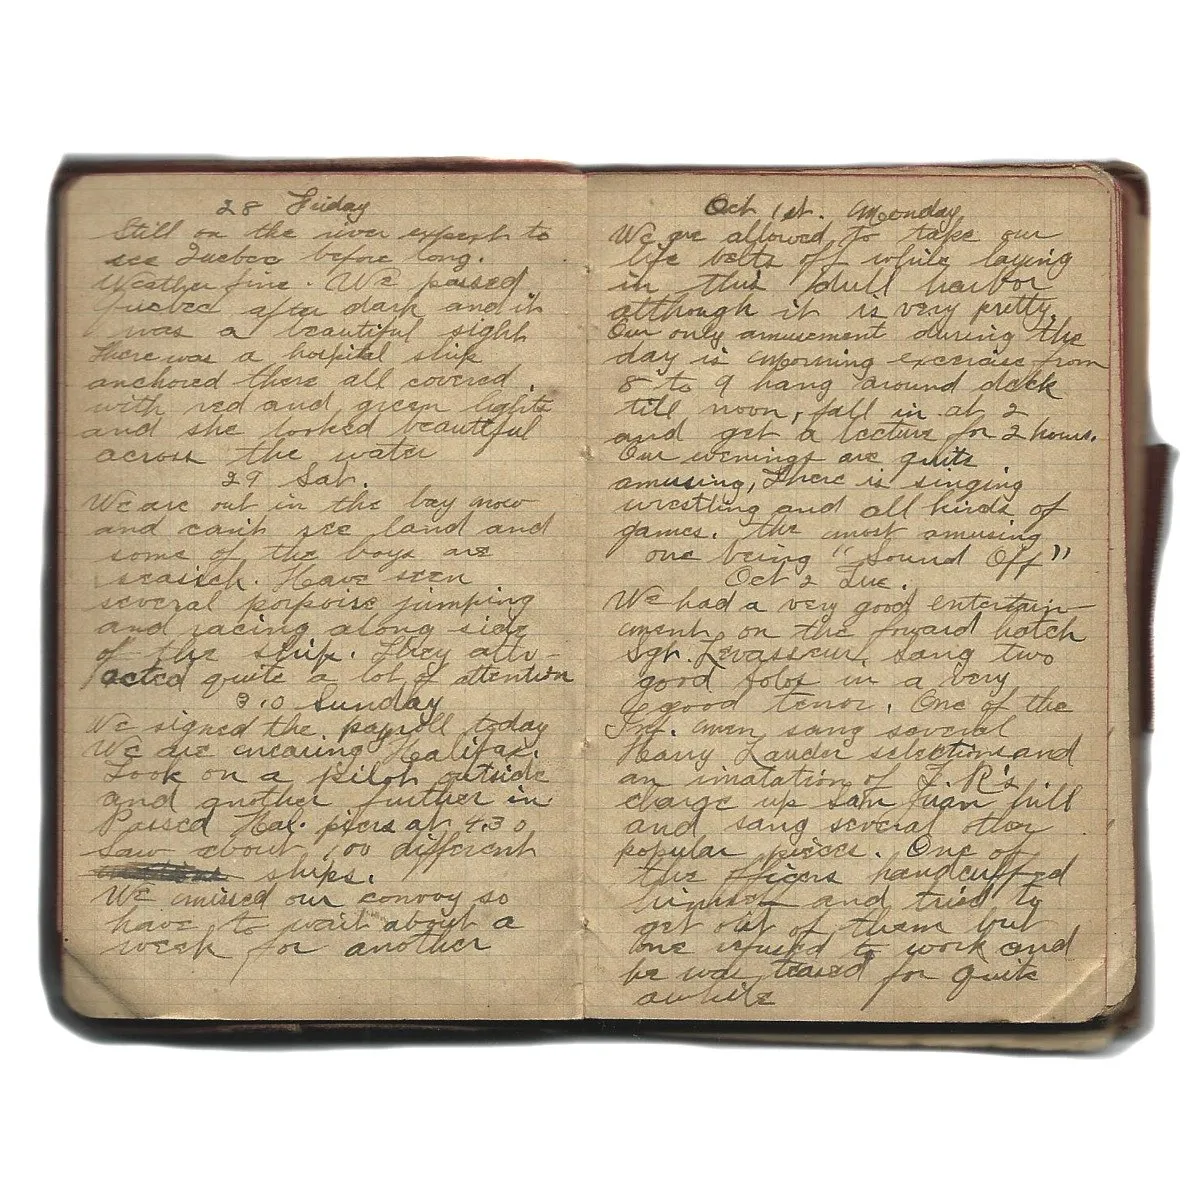 28 Friday
Still on the river expect to
see Quebec before long.
Weather fine. We passed
Quebec after dark and it
was a beautiful sight
There was a hospital ship
anchored there all covered
with red and green lights
and she looked beautiful
across the water
29 Sat.
We are out in the bay now
and can't see land and
some of the boys are
seasick. Have seen
several porpoise jumping
and racing along side
of the ship. They attr-
acted quite a lot of attention
30 Sunday
We signed the payroll today
We are nearing Halifax.
Took on a pilot outside
and another further in
Passed Hal. piers at 4.30
Saw about 100 different
ships.
We missed our convoy so
have to wait about a
week for another
Oct 1st. Monday
We are allowed to take our
life belts off while laying
in this dull harbor
although it is very pretty.
Our only amusement during the
day is morning excercise from
8 to 9 hang around deck
till noon, fall in at 2
and get a lecture for 2 hours.
Our evenings are quite
amusing, There is singing
wrestling and all kinds of
games. The most amusing
one being "Sound Off"
Oct 2 Tue.
We had a very good entertain-
ment on the forward hatch
Sgt. Levasseur sang two
good solos in a very
good tenor. One of the
Inf. men sang several
Harry Lauder selections and
an imatation of T.R's
charge up San Juan hill
and sang several other
popular pieces. One of
the officers handcuffed
himself and tried to
get out of them but
one refused to work and
he was teased for quite
awhile